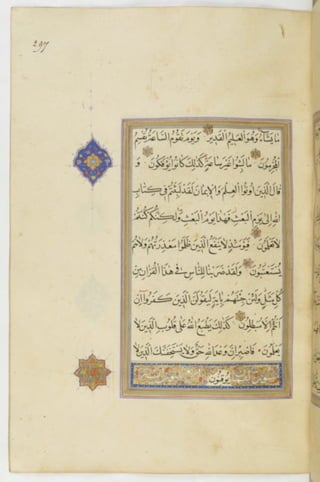 297
مَا يَشَآءُ وَهُوَ الْعَلِيمُ الْقَدِيرُ وَيَوْمَ تَقُومُ السَّاعَةُ يُقْسِمُ
الْمُجْرِمُونَ مَا لَبِثُوا غَيْرَ سَاعَةٍ كَذٰلِكَ كَانُوا يُؤْفَكُونَ وَ
قَالَ الَّذِينَ اُوتُوا الْعِلْمَ وَالْاِيمَانَ لَقَدْ لَبِثْتُمْ فِي كِتَابِ
اللهِ اِلٰى يَوْمِ الْبَعْثِ فَهٰذَا يَوْمُ الْبَعْثِ وَلٰكِنَّكُمْ كُنْتُمْ
لَا تَعْلَمُونَ فَيَوْمَئِذٍ لَا يَنْفَعُ الَّذِينَ ظَلَمُوا مَعْذِرَتُهُمْ وَلَا هُمْ
يُسْتَعْتَبُونَ وَلَقَدْ ضَرَبْنَا لِلنَّاسِ فِي هٰذَا الْقُرْاٰنِ مِنْ
كُلِّ مَثَلٍ وَلَئِنْ جِئْتَهُمْ بِاٰيَةٍ لَيَقُولَنَّ الَّذِينَ كَفَرُوا اِنْ
اَنْتُمْ اِلَّا مُبْطِلُونَ كَذٰلِكَ يَطْبَعُ اللهُ عَلٰى قُلُوبِ الَّذِينَ لَا
يَعْلَمُونَ فَاصْبِرْ اِنَّ وَعْدَ اللهِ حَقٌّ وَلَا يَسْتَخِفَّنَّكَ الَّذِينَ لَا
يُوقِنُونَ